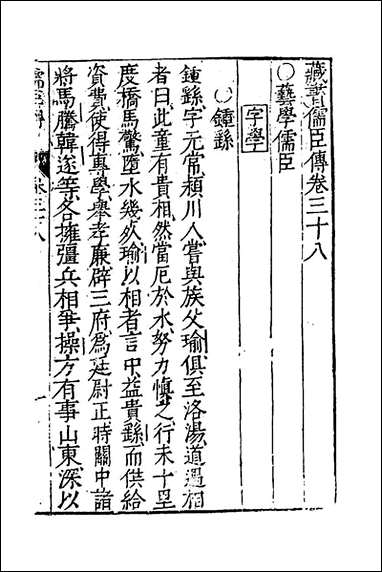 藏書儒臣傳卷三十八
○藝學儒臣
字學
○鍾繇
鍾繇字元常潁川人嘗與族父瑜俱至洛陽道遇相
者曰此童有貴相然當厄於水努力慎之行未十里
度橋馬驚墮水幾死瑜以相者言中益貴繇而供給
資費使得專學舉孝廉辟三府為廷尉正時關中諸
將馬騰韓遂等各擁彊兵相爭操方有事山東深以
卷三十八